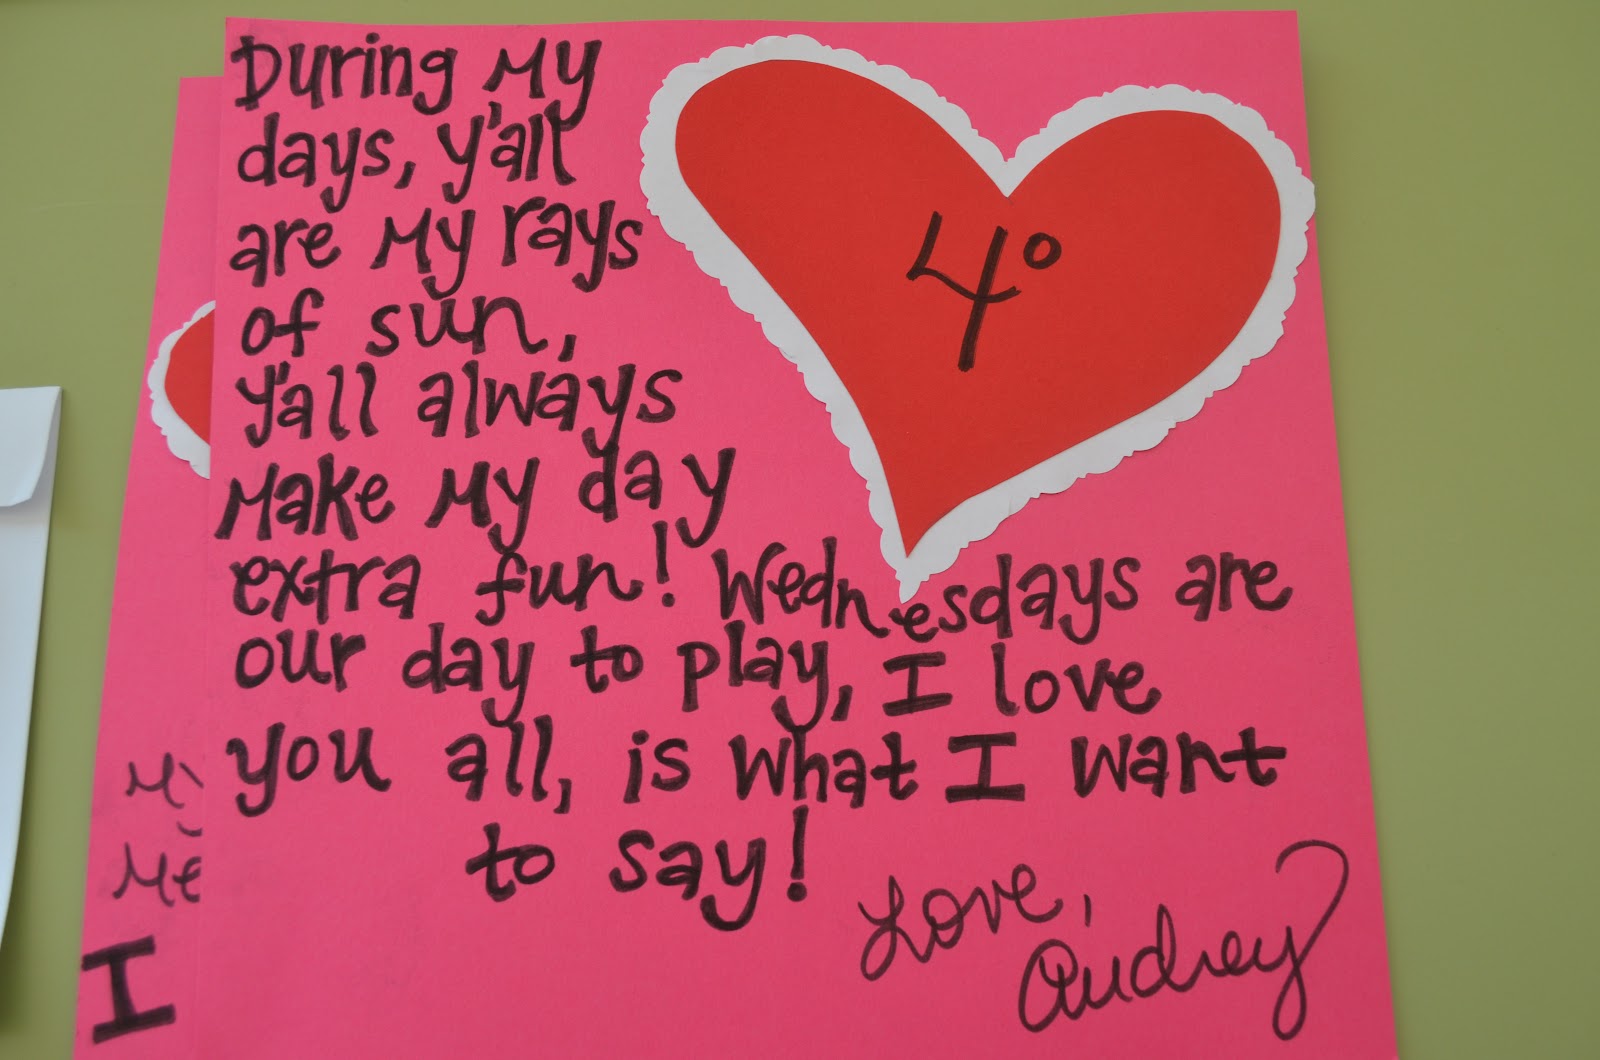 During My
days, y'all
are My rays
of sun,
Y'all always
Make My day
extra fun! Wednesdays are
our day to play, I love
you all, is what I want
to say!
Love,
Audrey
4°
My
Me
I